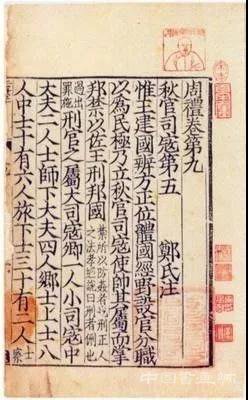 周禮卷第九
秋官司寇第五 鄭氏注
惟王建國辨方正位體國經野設官分職
以為民極乃立秋官司寇使帥其屬而掌
邦禁以佐王刑邦國禁所以防姦者也刑正人之法孝經說曰刑者侀也
過出罪施刑官之屬大司寇卿一人小司寇中
大夫二人士師下大夫四人鄉士上士八
人中士十有六人旅下士三十有二人士察